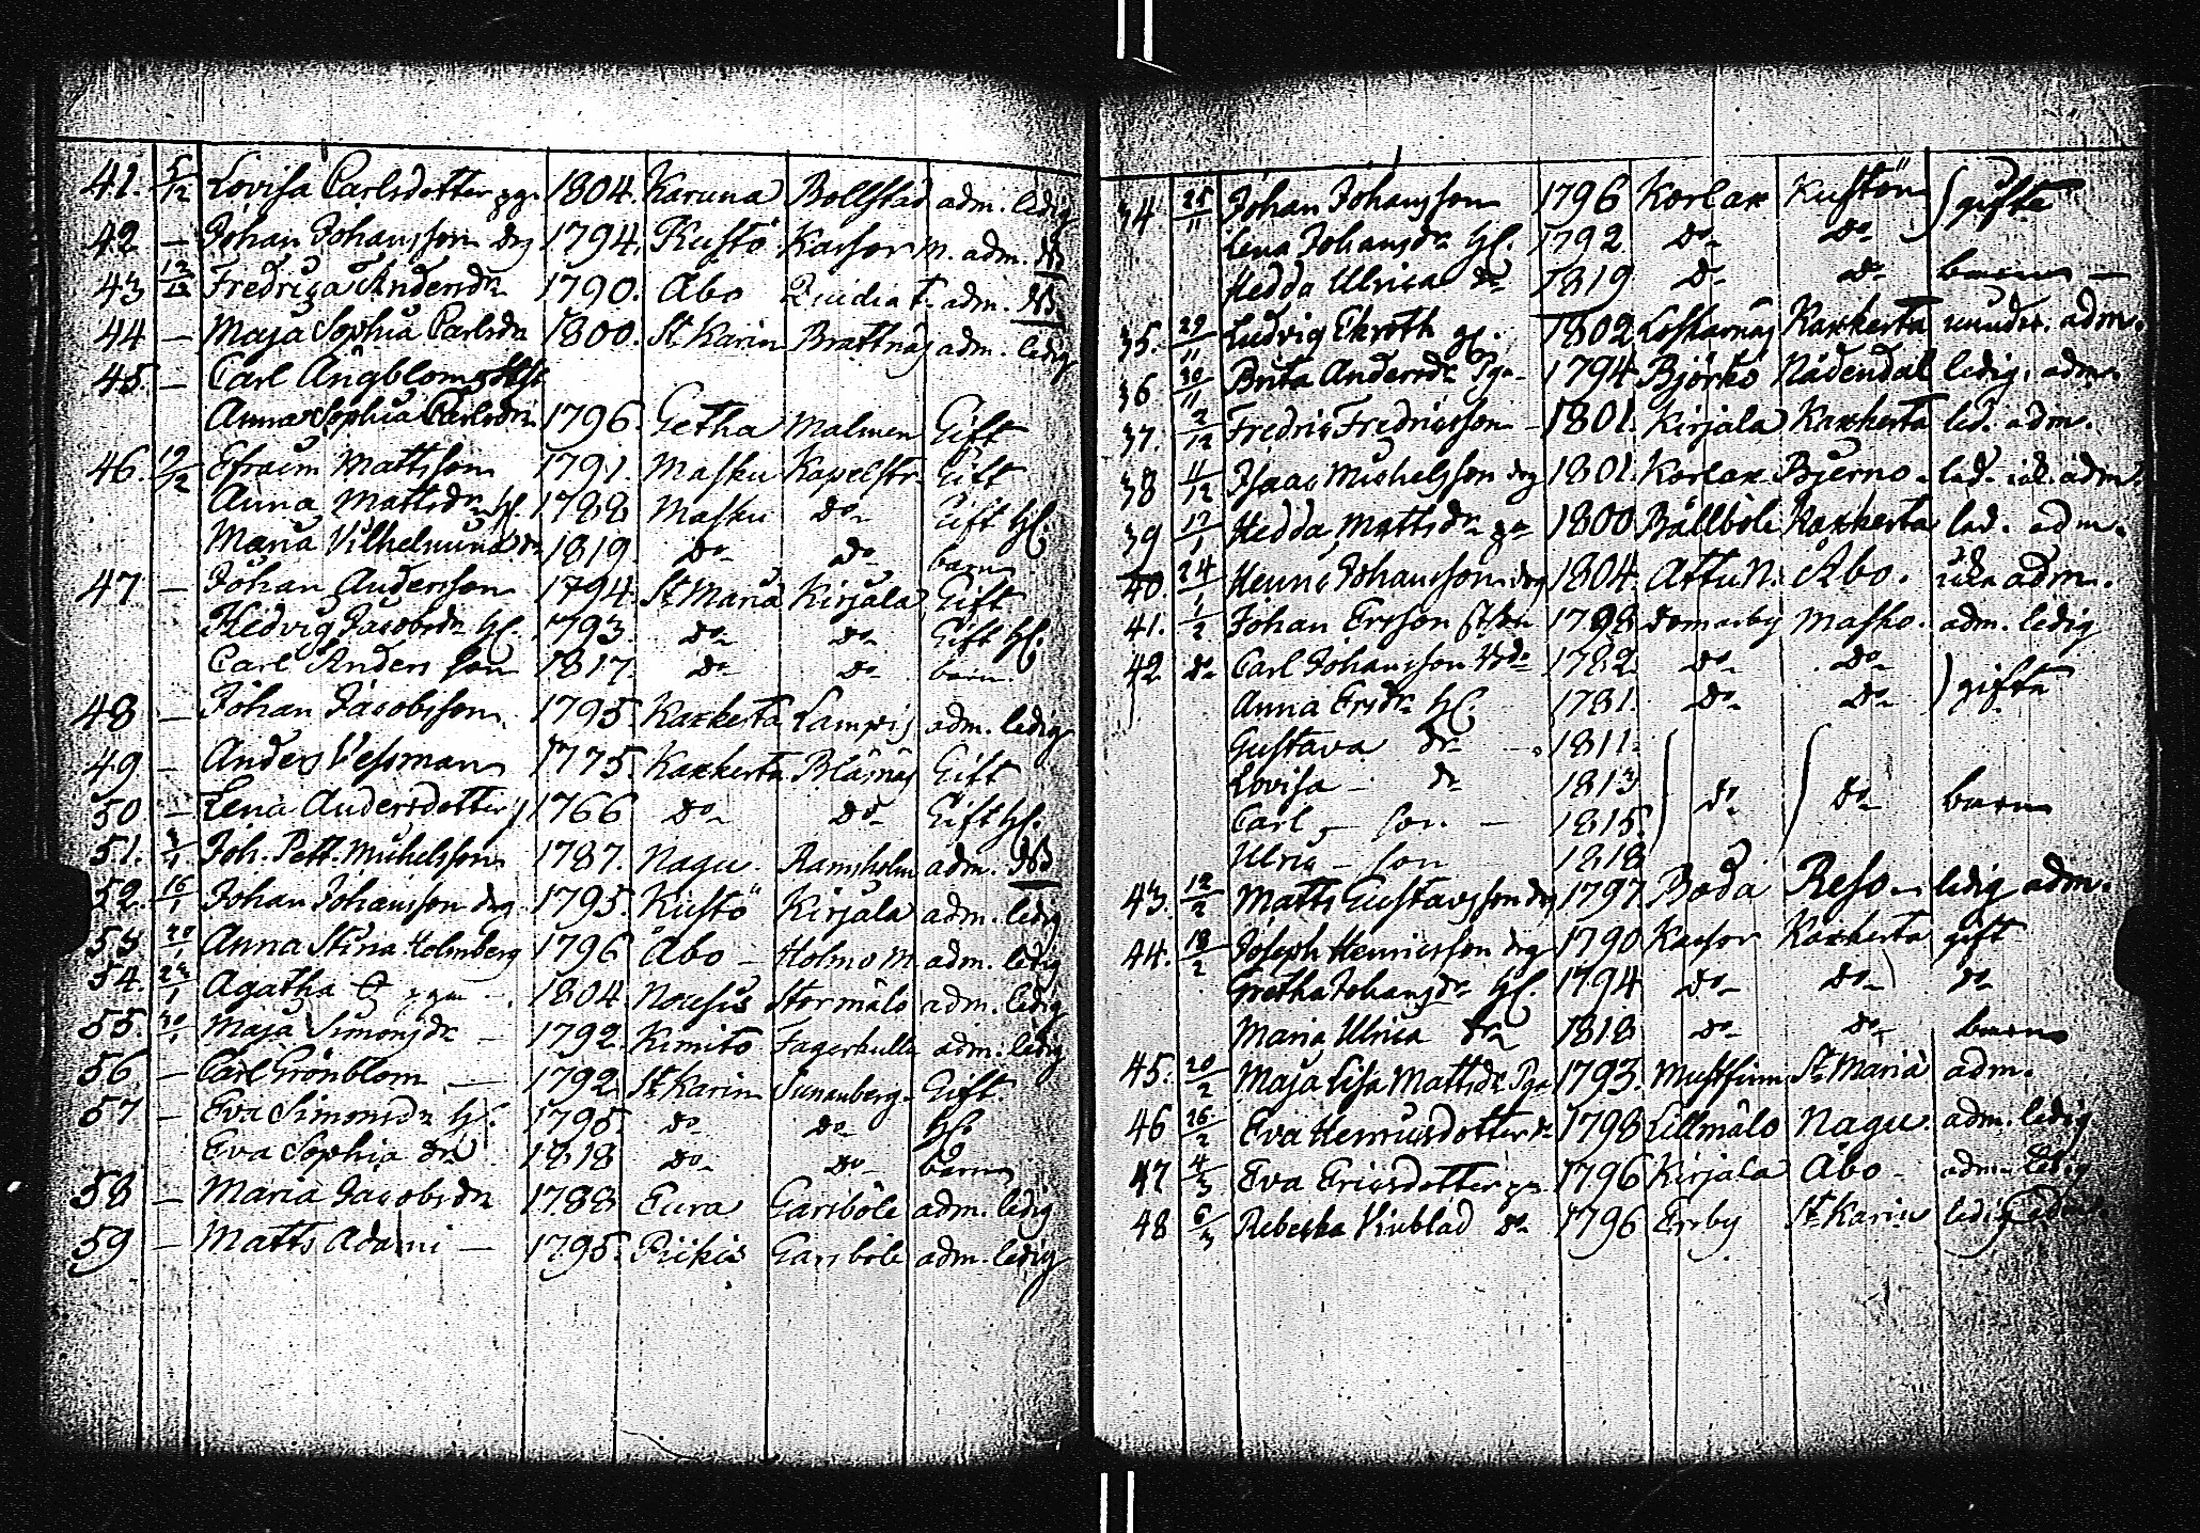 41. 5/12 Lovisa Carlsdotter pga 1804. Karuna Bollstad adm. ledig
42 — Johan Johansson drg 1794. Kustö Kassor M. adm. NB
43 12/12 Fredrica Andersdr 1790. Åbo Quidia t. adm. NB
44 — Maja Sophia Carlsdr 1800. St Karin Brattnäs adm. ledig
45. — Carl Ängblom
Anna Sophia Carlsdr 1796. Getha Malmen Gift
46. 19/12 Efraim Mattsson 1791. Masku Kapelstr. Gift
Anna Mattsdr h. 1788 Masku do Gift h.
Maria Vilhelmina dr 1819. do do barn
47 — Johan Andersson 1794. St Maria Kirjala Gift
Hedvig Jacobsdr h. 1793. do do Gift h.
Carl Anders son 1817. do do barn
48 — Johan Jacobsson 1795. Kaxkerta Lampis adm. ledig
49 — Anders Vessman 1775. Kaxkerta Blåsnäs Gift
50 — Lena Andersdotter 1766 do do Gift h.
51. Joh. Pett. Michelsson 1787. Nagu Ramsholm adm. NB
52. 16/1 Johan Johansson drg 1795. Kustö Kirjala adm. ledig
53 20/1 Anna Stina Holmberg 1796 Åbo – Holmo M. adm. ledig
54. 23/1 Agatha pga 1804. Nousis Stormälö adm. ledig
55. 30/1 Maja Simonsdr – 1792. Kimito Fagerkulla adm. ledig
56 — Carl Grönblom — 1792. St Karin Sunnanberg. Gift.
57 — Eva Simonsdr h. 1795. do do h.
Eva Sophia dr 1818 do do barn
58 — Maria Jacobsdr 1788 Eura Garsböle adm. ledig
59 — Matts Adami — 1795. Piikis Garsböle adm. ledig
34. 25/11 Johan Johansson 1796 Korlax Kustön gifte
Lena Johansdr h. 1792 do do
Hedda Ulrica dr 1819 do do barn —
35. 29/11 Ludvig Ekroth 1802 Loskarnäs Kaxkerta adm.
36 30/11 Brita Andersdr Pga 1794 Björkö Nådendal ledig. adm.
37. 2/12 Fredric Fredricsson – 1801. Kirjala Kaxkerta led. adm.
38 11/12 Isaac Michelsson drg 1801. Korlax Bjerno. led. adm.
39 17/1 Hedda Mattsdr pga 1800 Bällböle Kaxkerta led. adm.
40. 24/1 Henric Johansson drg 1804. Attu N. Åbo. adm.
41. 1/2 Johan Ersson 1798 Domarby Masko. adm. ledig
42 do Carl Johansson 1782. do do gifte
Anna Ersdr h. 1781. do do
Gustava dr — 1811.
Lovisa – dr 1813 do do barn
Carl – son – 1815.
Ulric – son 1818
43. 12/2 Matts Gustavsson drg 1797 Boda Reso – ledig adm.
44. 18/2 Joseph Henricsson drg 1790 Kassor Kaxkerta gift
Gretha Johansdr h. 1794 do do do
Maria Ulrica dr 1818 do do barn
45. 20/2 Maja Lisa Mattsdr Pga 1793. Mustfinn St Maria adm.
46 26/2 Eva Henricsdotter do 1798 Lillmälo Nagu. adm. ledig
47 4/3 Eva Ericsdotter pga 1796 Kirjala Åbo – adm. ledig
48 6/3 Rebecka Vinblad do 1796 Ersby St Karin ledig adm.